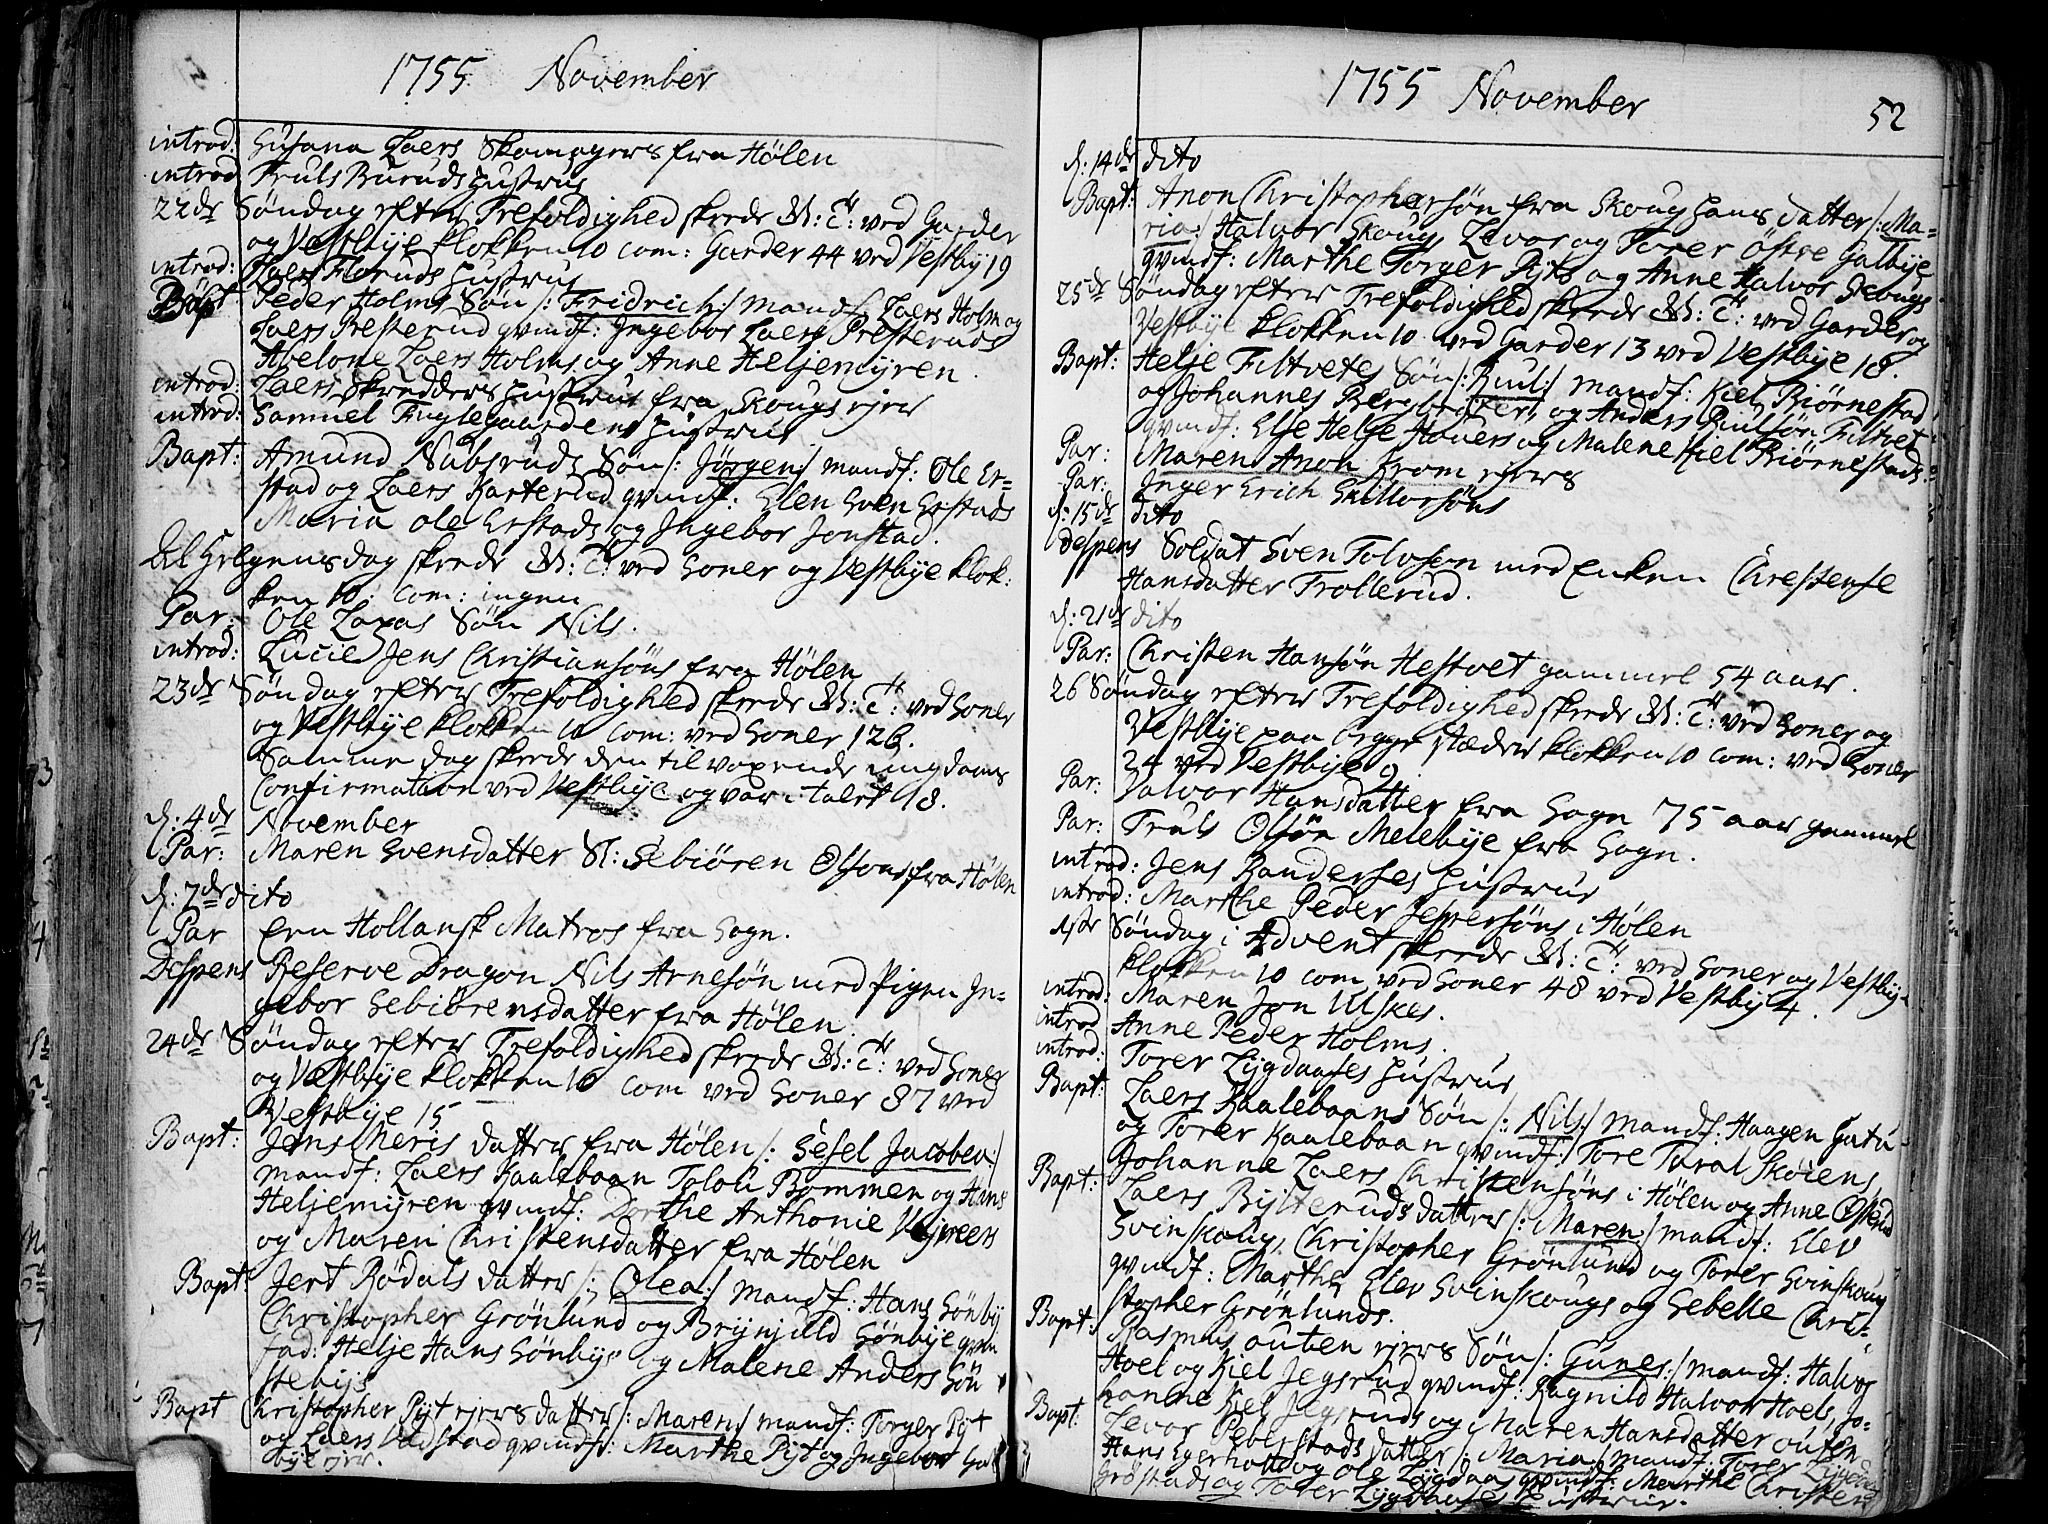 1755 November
introd: Susana Laers Skomagers fra Hølen
introd Truls Buruds Hustrue
22de Søndag efter Trefoldighed skede M: T: ved Garder
og Vestbye klokken 10 com: Garder 44 ved Vestby 19
introd: Hans Floruds Hustrue
Bapt Peder Holms Søn /: Fridrich :/ mandf: Laers Holm og
Laers Presterud qvindf: Ingebor Laers Presteruds
Abelone Laers Holms og Anne Heljemyren.
introd: Laers Skredders Hustrue fra Skougs ejer
introd: Samuel Fuglegaardens Hustrue
Bapt: Amund Nabsruds Søn /: Jørgen :/ mandf: Ole Er-
stad og Laers Karterud qvindf: Elen Sven Erstads
Maria Ole Erstads og Ingebor Jonstad.
Al Helgensdag skede M: T: ved Soner og Vestbye klok:
ken 10: com: ingen
Par: Ole Laxas Søn Nils.
introd: Lucie Jens Christiansøns fra Hølen
23de Søndag efter Trefoldighed skede M: T: ved Soner
og Vestbye klokken 10 com: ved Soner 126.
Samme dag skede den tilvoxende ungdoms
Confirmation ved Vestbye og var i talet 18.
d: 4de November
Par: Maren Svensdatter Sl: Sebiøren Olsøns fra Hølen
d: 7de dito
Par een Hollansk Matros fra Sogn.
Despens Reserve Dragon Nils Arnesøn med Pigen In-
gebor Sebiørensdatter fra Hølen
24de Søndag efter Trefoldighed skede M: T: ved Soner
og Vestbye klokken 10 com ved Soner 87 ved
Vestbye 15
Bapt: Jens Meris datter fra Hølen /: Sesel Jacobea :/
mandf: Laers Kaalebaan Tolli Bommen og Hans
Heljemyren qvindf: Dorthe Anthonie Vejreers
og Maren Christensdatter fra Hølen
Bapt: Jert Rødals datter /: Olea :/ mandf: Hans Sønby
Christopher Grønlund og Brynjuld Sønbye qvin
fad: Helje Hans Sønbys og Malene Anders Søn
stebys
Bapt Christopher Pyt ejers datter /: Maren :/ mandf: Torger Pyt
og Laers Vadstad qvindf: Marthe Pyt og Ingebor Gal
bye ejer.
1755 November
52
d: 14de dito
Bapt: Anon Christophersøn fra Skoug Hans datter /: Ma-
ria :/ Halvor Skoug, Levor og Torer Østre Galbye
qvindf: Marthe Torger Pyts og Anne Halvor Skougs
25de Søndag efter Trefoldighed skede M: T: ved Garder og
Vestbye klokken 10 ved Garder 13 ved Vestbye 18.
Bapt: Helje Filtvets Søn /: Riul :/ mandf: Kiel Biørnestad
og Johannes Bergløster, og Anders Riulsøn Filtvet
qvindf: Else Helje Hauers og Malene Kiel Biørnestads.
Par: Maren Anon Krom ejers
Par: Inger Erich Skillorsøns
d: 15de dito
Despens Soldat Sven Tolvsøn med Enken Christense
Hansdatter Trollerud.
d: 21de dito
Par: Christen Hansøn Hestvet gammel 54 aar.
26 Søndag efter Trefoldighed skede M: T: ved Soner og
Vestbye paa begge stæder klokken 10 com: ved Soner
24 ved Vestbye 9.
Par: Valvor Hansdatter fra Sogn 75 aar gammel
Par: Truls Olsøn Melebye fra Sogn.
introd: Jens Randerses Hustrue
introd: Marthe Peder Jespersøns i Hølen
1ste Søndag i Advent skede M: T: ved Soner og Vestby
klokken 10 com ved Soner 48 ved Vestby 4.
introd: Maren Jon Ulskes.
introd Anne Peder Holms.
introd: Torer Lygdaases Hustrue
Bapt: Laers Kaalebaans Søn /: Nils :/ mandf: Haagen Gutu
og Torer Kaalebaan qvindf: Tore Taral Skøiens
Johanne Laers Christensøns i Hølen og Anne Østenu
Bapt: Laers Bylteruds datter /: Maren :/ mandf: Elev
Svinskoug, Christopher Grønlund og Torer Svinskoug
qvindf: Marthe Elev Svinskougs og Sebelle Chri-
stopher Grønlunds.
Bapt: Rasmus outen ejers Søn /: Gunes :/ mandf: Halvor
Hoel og Kiel Jegsrud qvindf: Ragnild Halvor Hoels, Jo-
hanne Kiel Jegsruds og Maren Hansdatter outen
Bapt: Levor Peberstads datter /: Maria :/ mandf: Torer Lygdaas
Hans Egerholt og Ole Lygdaas qvindf: Marthe Christen
Grøstads og Torer Lygdaases Hustrue.